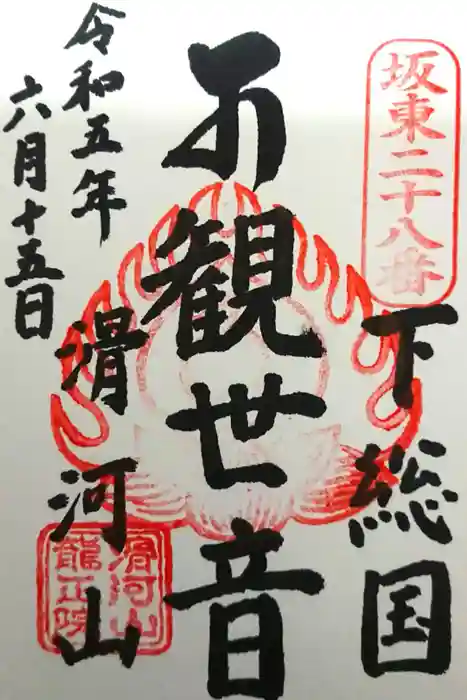 坂東二十八番
下総国
観世音
滑河山
令和五年
六月十五日
滑河山
龍正院